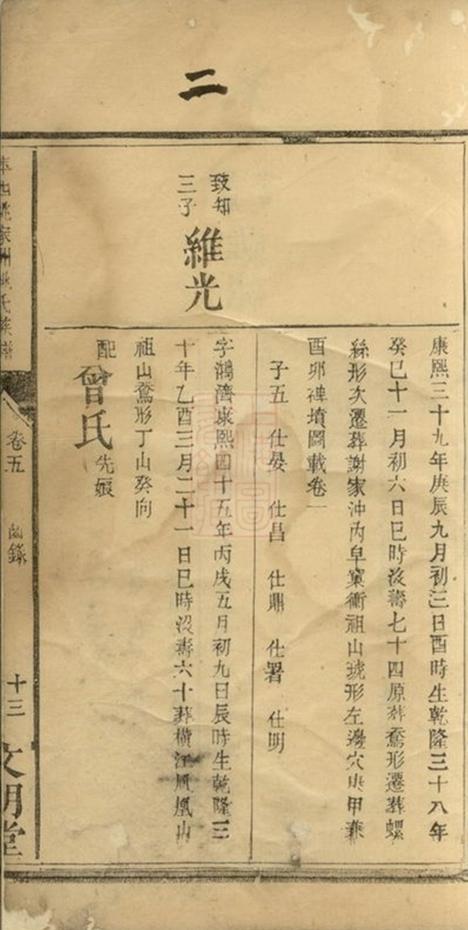 二
康熙三十九年庚辰九月初三日酉時生乾隆三十八年
癸巳十一月初六日巳時没壽七十四原葬鵞形遷葬螺
絲形夂遷葬謝家沖內皁窠衝祖山琥形左邊穴庚甲兼
酉卯碑墳圖載卷一
子五 仕晏 仕昌 仕鼎 仕署 仕明
致知
三子
維光
字鴻濟康熙四十五年丙戌五月初九日辰時生乾隆三
十年乙酉三月二十一日巳時没壽六十葬橫江鳳凰山
祖山鵞形丁山癸向
配曾氏先嫁
卷五
齒錄
十三
文明堂